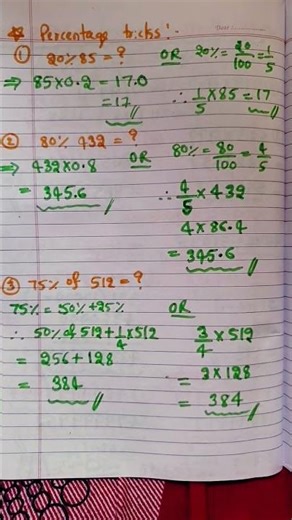 ☆ Percentage tricks :-
① 20% 85 = ? OR 20% = 20/100 = 1/5
⇒ 85×0.2 = 17.0
= 17 ∴ 1/5 × 85 = 17
② 80% 432 = ?
⇒ 432×0.8 OR 80% = 80/100 = 4/5
= 345.6 ∴ 4/5 × 432
4 × 86.4
= 345.6
③ 75% of 512 = ?
75% = 50% + 25% OR
∴ 50% of 512 + 1/4 × 512 3/4 × 512
= 256 + 128 = 3 × 128
= 384 = 384